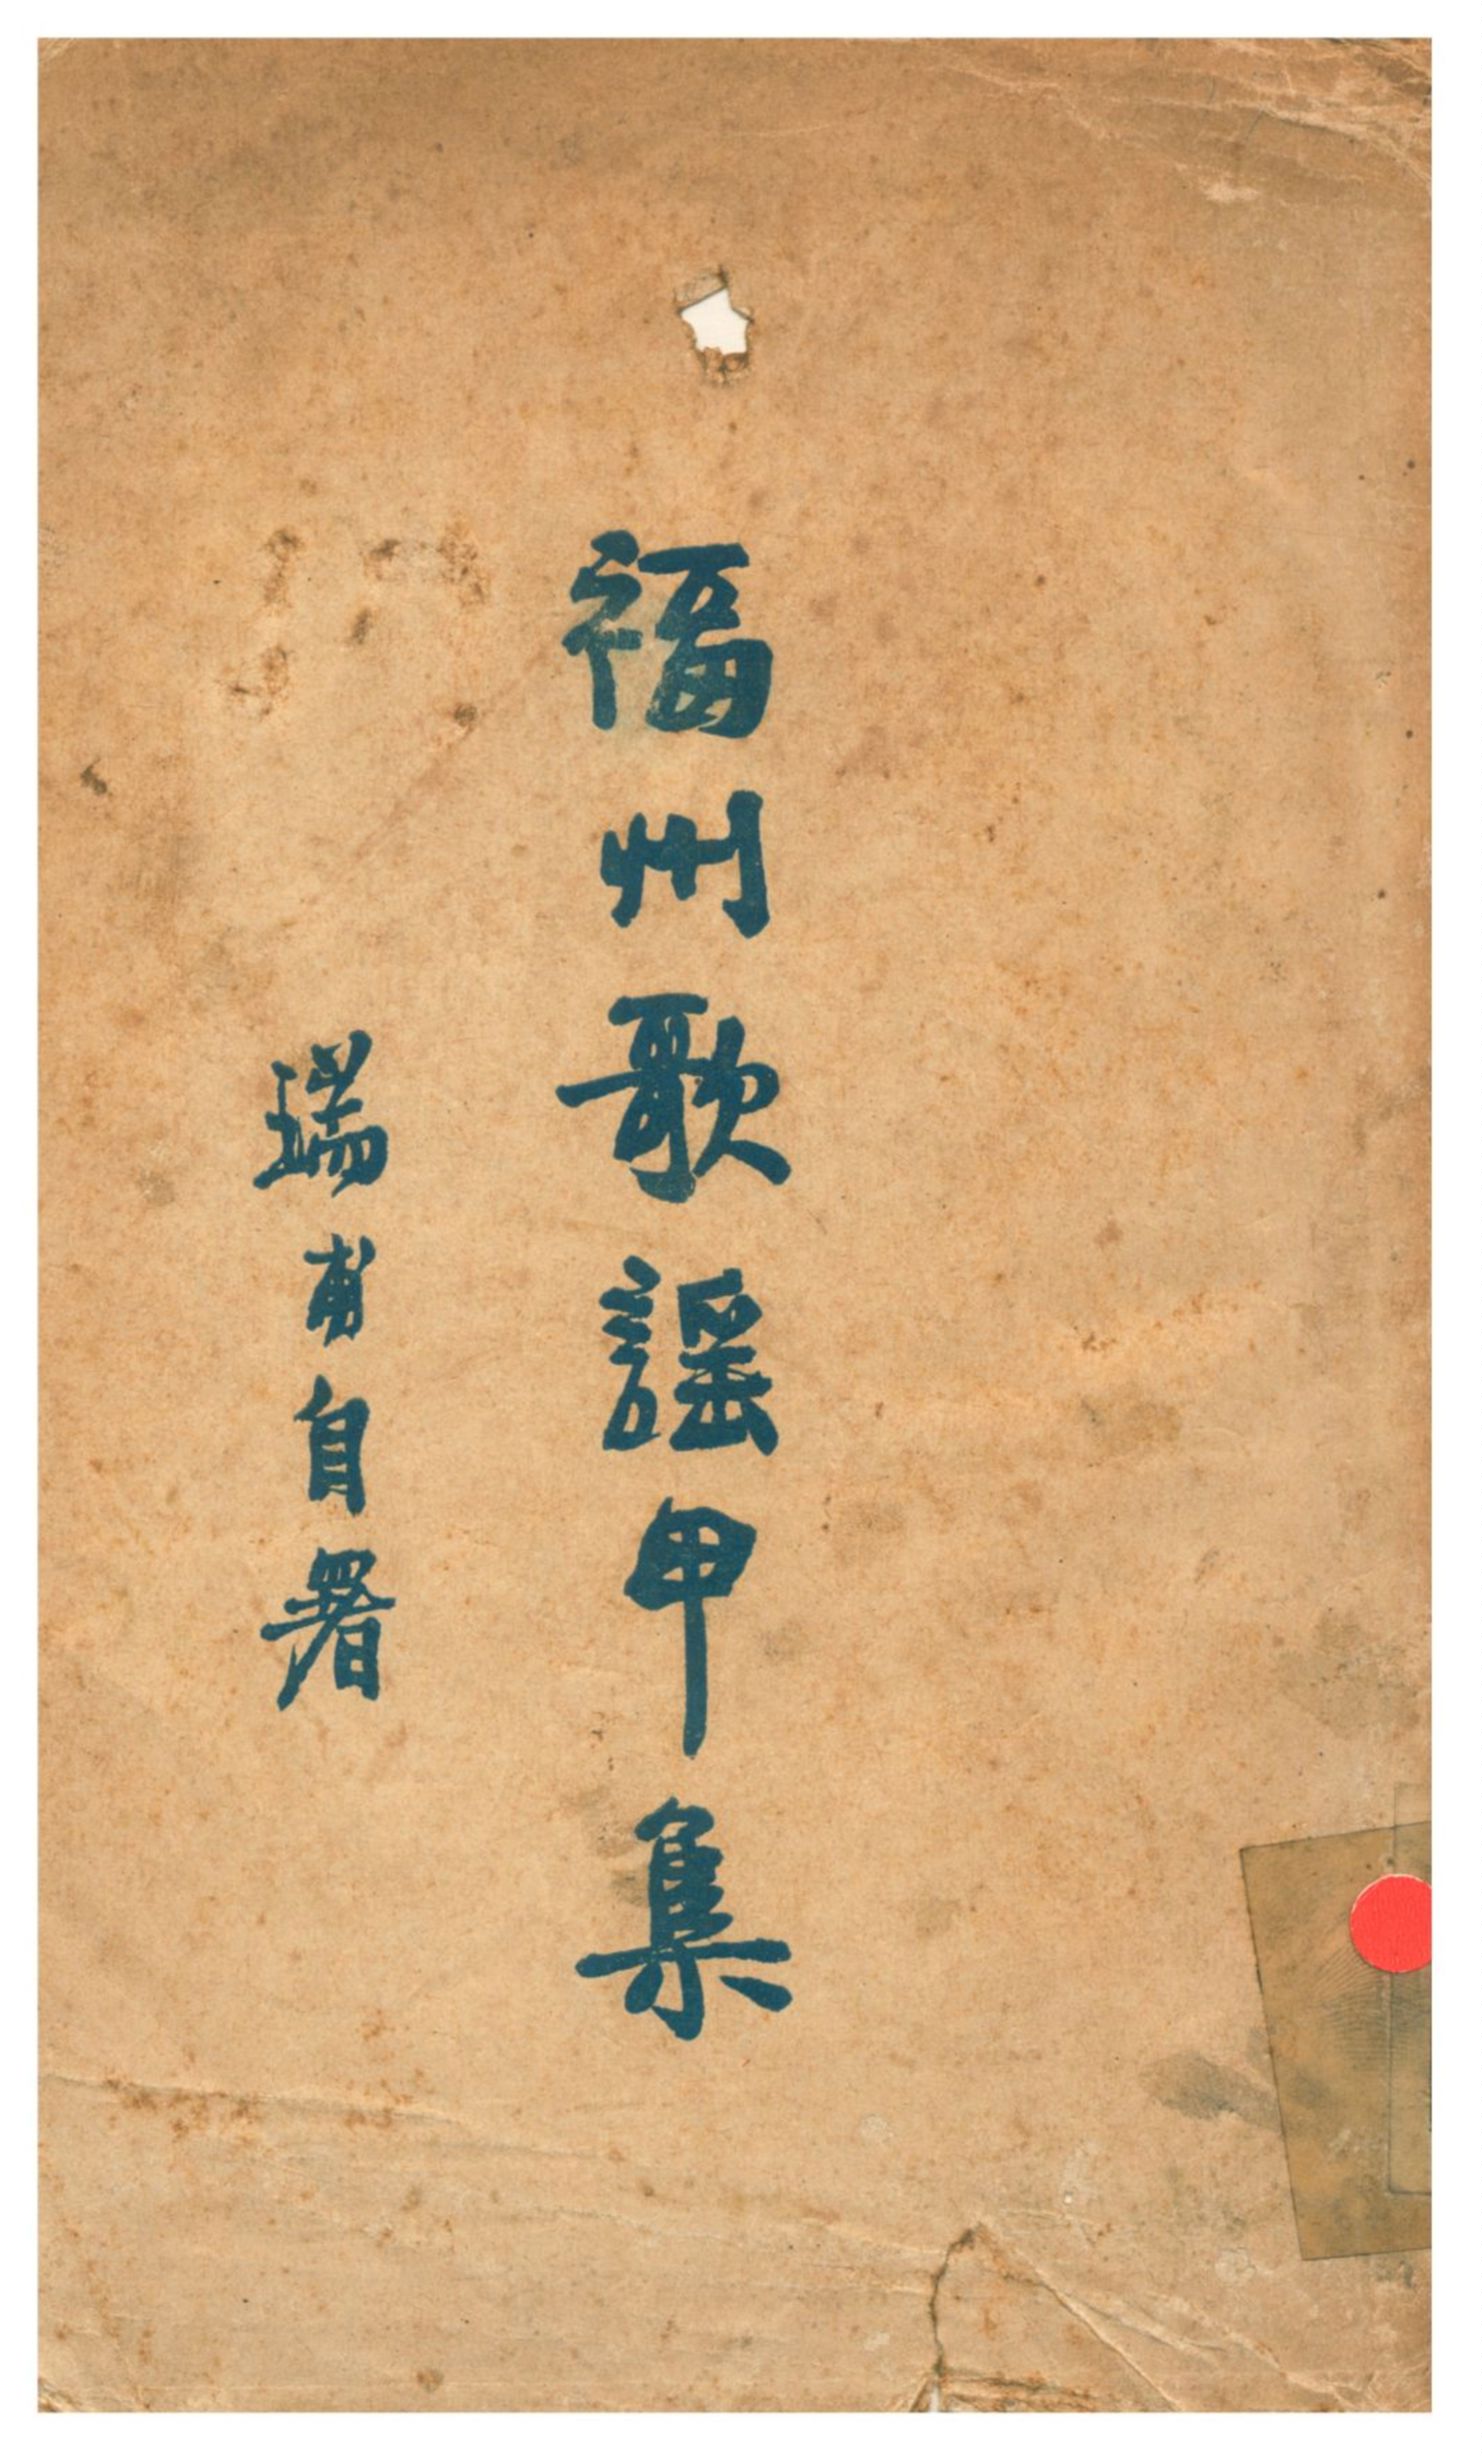 福州歌謠甲集
瑞甫自署